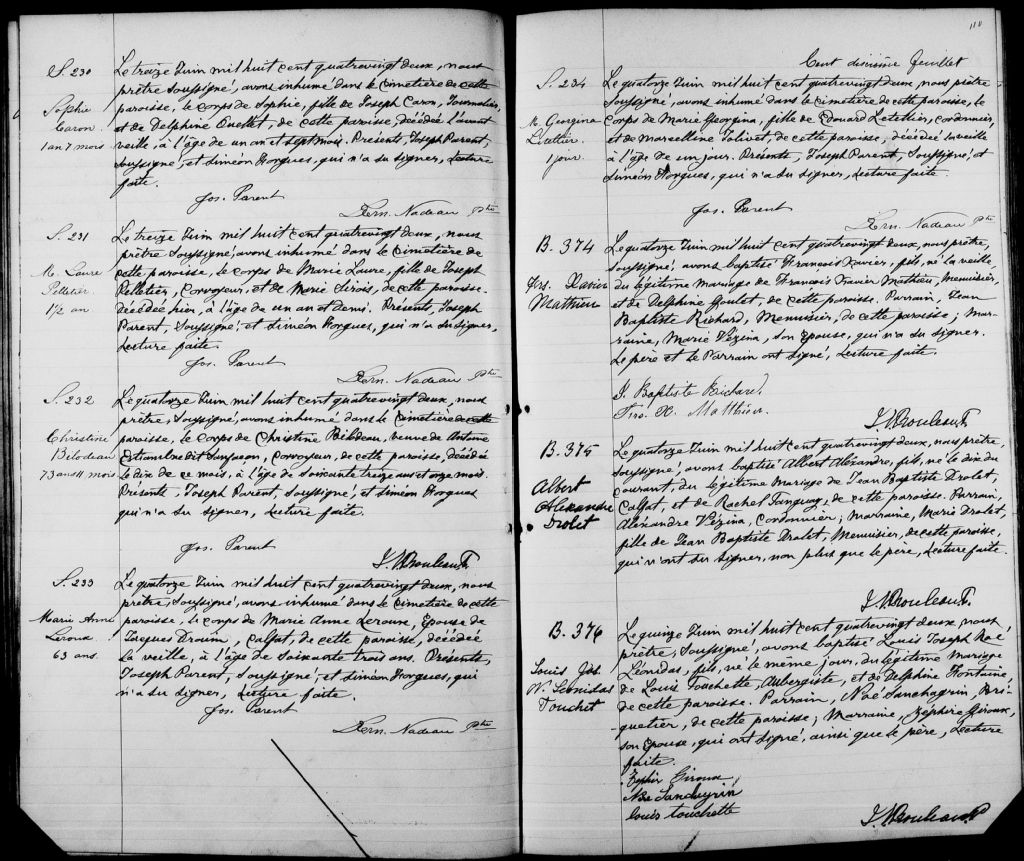 S. 230
Sophie
Caron
1 an 7 mois
Le treize Juin mil huit cent quatrevingt deux, nous
prêtre soussigné, avons inhumé dans le cimetière de cette
paroisse, le corps de Sophie, fille de Joseph Caron, Journalier,
et de Delphine Ouellet, de cette paroisse, décédée l'avant
veille, à l'âge de un an et sept mois. Présents, Joseph Parent,
soussigné, et Siméon Forgues, qui n'a su signer, Lecture
faite.
Jos. Parent
Fern. Nadeau Ptre
S. 231
M. Laure
Pelletier
1 1/2 an
Le treize Juin mil huit cent quatrevingt deux, nous
prêtre soussigné, avons inhumé dans le cimetière de
cette paroisse, le corps de Marie Laure, fille de Joseph
Pelletier, Corroyeur, et de Marie Sirois, de cette paroisse
décédée hier, à l'âge de un an et demi. Présents, Joseph
Parent, soussigné, et Siméon Forgues, qui n'a su signer,
Lecture faite.
Jos. Parent
Fern. Nadeau Ptre
S. 232
Christine
Bilodeau
73 ans 11 mois
Le quatorze Juin mil huit cent quatrevingt deux, nous
prêtre, soussigné, avons inhumé dans le cimetière de cette
paroisse, le corps de Christine Bilodeau, veuve de Antoine
dit Sanfaçon, Corroyeur, de cette paroisse, décédée
le dix de ce mois, à l'âge de soixante treize ans et onze mois.
Présents, Joseph Parent, soussigné, et Siméon Forgues
qui n'a su signer, Lecture faite.
Jos. Parent
S. 233
Marie Anne
Leroux
63 ans
Le quatorze Juin mil huit cent quatrevingt deux, nous
prêtre, soussigné, avons inhumé dans le cimetière de cette
paroisse, le corps de Marie Anne Leroux, Epouse de
Jacques Drouin, calfat, de cette paroisse, décédée
la veille, à l'âge de soixante trois ans. Présents,
Joseph Parent, soussigné, et Siméon Forgues, qui
n'a su signer, Lecture faite.
Jos. Parent
Fern. Nadeau Ptre
110
Cent dixième feuillet
S. 234
M. Georgina
Letellier
1 jour
Le quatorze Juin mil huit cent quatrevingt deux, nous prêtre
soussigné, avons inhumé dans le cimetière de cette paroisse, le
corps de Marie Georgina, fille de Edouard Letellier, cordonnier,
et de Marcelline Jolivet, de cette paroisse, décédée la veille
à l'âge de un jour. Présents, Joseph Parent, soussigné, et
Siméon Forgues, qui n'a su signer, Lecture faite.
Jos. Parent
Fern. Nadeau Ptre
B. 374
Frs. Xavier
Mathieu
Le quatorze Juin mil huit cent quatrevingt deux, nous prêtre,
soussigné, avons baptisé François Xavier, fils, né la veille,
du légitime mariage de François Xavier Mathieu, Menuisier,
et de Delphine Goulet, de cette paroisse. Parrain, Jean
Baptiste Richard, Menuisier, de cette paroisse; mar-
raine, Marie Vézina, son épouse, qui n'a su signer.
Le père et le Parrain ont signé, Lecture faite.
J. Baptiste Richard,
Frs. X. Matthieu
B. 375
Albert
Alexandre
Drolet
Le quatorze Juin mil huit cent quatrevingt deux, nous prêtre
soussigné, avons baptisé Albert Alexandre, fils, né le dix du
courant, du légitime mariage de Jean Baptiste Drolet,
Calfat, et de Rachel Tanguay, de cette paroisse. Parrain,
Alexandre Vézina, Cordonnier; Marraine, Marie Drolet,
fille de Jean Baptiste Drolet, Menuisier, de cette paroisse,
qui n'ont su signer, non plus que le père, Lecture faite
B. 376
Louis Jos.
N. Leonidas
Touchet
Le quinze Juin mil huit cent quatrevingt deux nous
prêtre, soussigné, avons baptisé Louis Joseph Noé
Léonidas, fils, né le même jour, du légitime mariage
de Louis Touchette, Aubergiste, et de Delphine Fontaine,
de cette paroisse. Parrain, Noé Sanchagrin, Bri-
quetier, de cette paroisse; Marraine, Zéphire Giroux,
son épouse, qui ont signé, ainsi que le père, Lecture
faite.
Zephir Giroux
Noe Sanchagrin
louis touchette